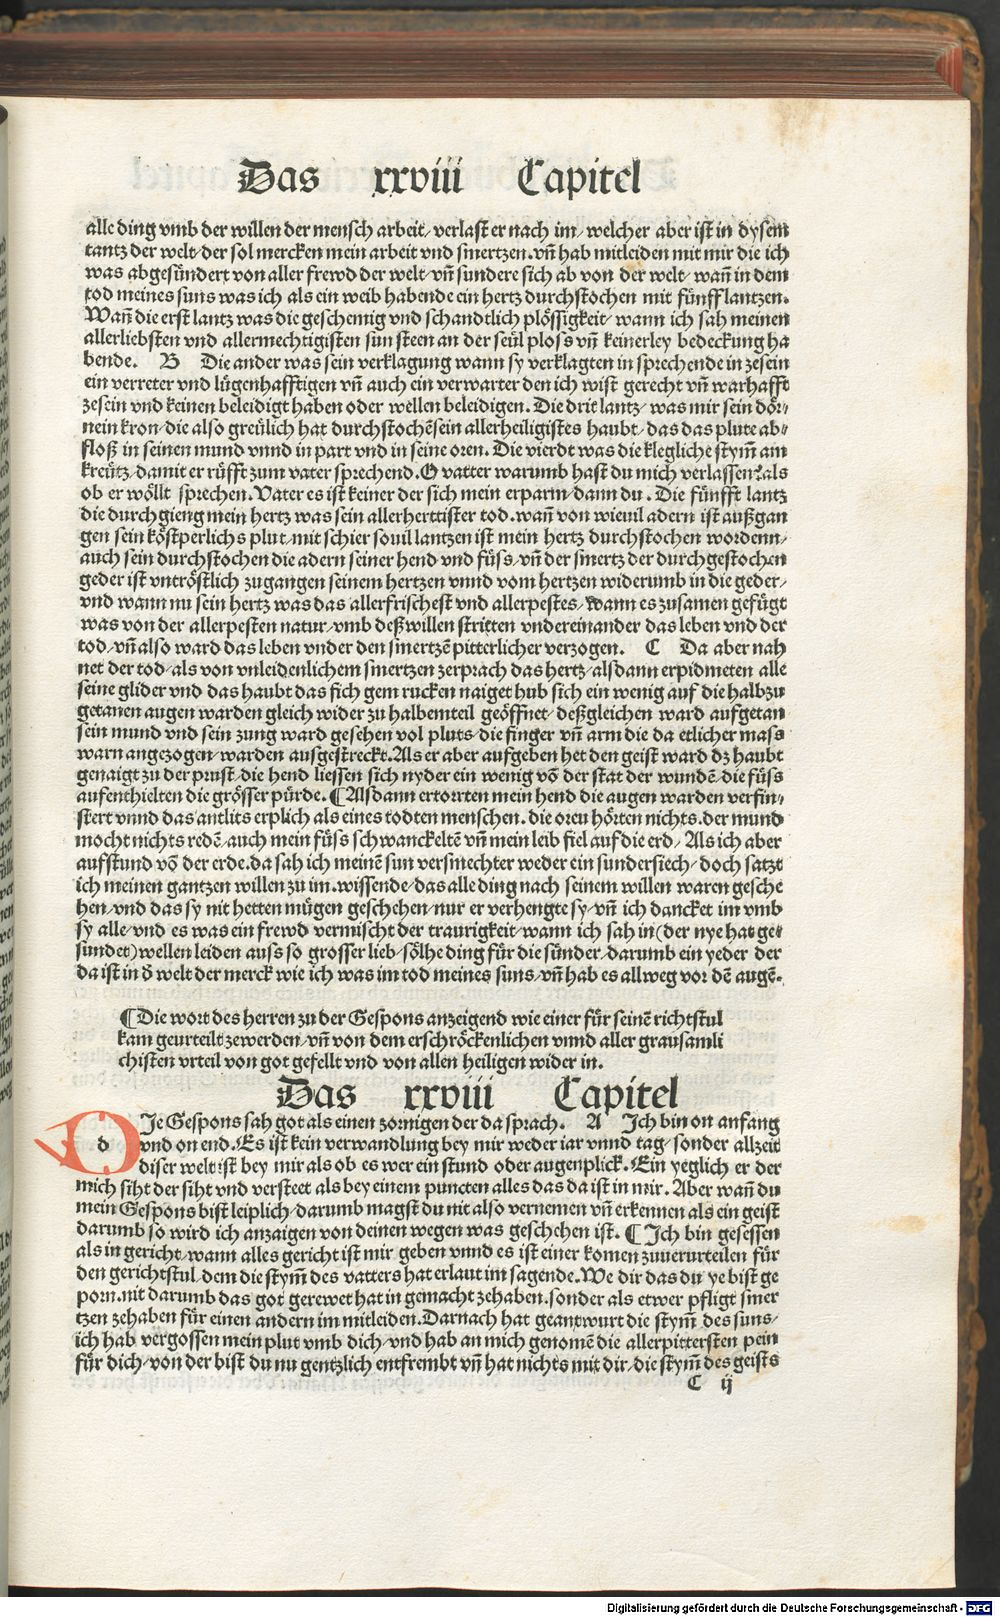 Das xxviii Capitel
alle ding vmb der willen der mensch arbeit/ verlast er nach im/ welcher aber ist in dysem
tantz der welt/ der sol mercken mein arbeit vnd smertzen. vñ hab mitleiden mit mir die ich
was abgesündert von aller frewd der welt/ vñ sundere sich ab von der welt/ wañ in dem
tod meines suns was ich als ein weib habende ein hertz durchstochen mit fünff lantzen.
Wañ die erst lantz was die geschemig vnd schandtlich plössigkeit/ wann ich sah meinen
allerliebsten vnd allermechtigisten sun steen an der seül ploss vñ keinerley bedeckung ha
bende. B Die ander was sein verklagung wann sy verklagten in sprechende in zesein
ein verreter vnd lügenhafftigen vñ auch ein verwarter den ich wist gerecht vñ warhafft
zesein vnd keinen beleidigt haben oder wellen beleidigen. Die drit lantz/ was mir sein dör/
nein kron/ die also greülich hat durchstochē sein allerheiligistes haubt/ das das plute ab/
floß in seinen mund vnnd in part vnd in seine oren. Die vierdt was die klegliche stym̄ am
kreütz/ damit er rüfft zum vater sprechend. O vatter warumb hast du mich verlassen? als
ob er wöllt sprechen. Vater es ist keiner der sich mein erparm/ dann du. Die fünfft lantz
die durch gieng mein hertz was sein allerherttister tod. wañ von wieuil adern ist außgan
gen sein köstperlichs plut/ mit schier souil lantzen ist mein hertz durchstochen wordenn/
auch sein durchstochen die adern seiner hend vnd füss/ vñ der smertz der durchgestochen
geder ist vntröstlich zugangen seinem hertzen vnnd vom hertzen widerumb in die geder/
vnd wann nu sein hertz was das allerfrischest vnd allerpestes/ wann es zusamen gefügt
was von der allerpesten natur/ vmb deßwillen stritten vndereinander das leben vnd der
tod/ vñ also ward das leben vnder den smertzē pitterlicher verzogen. C Da aber nah
net der tod/ als von vnleidenlichem smertzen zerprach das hertz/ alsdann erpidmeten alle
seine glider vnd das haubt das sich gem rucken naiget hub sich ein wenig auf die halbzu
getanen augen warden gleich wider zu halbemteil geöffnet/ deßgleichen ward aufgetan
sein mund vnd sein zung ward gesehen vol pluts/ die finger vñ arm die da etlicher mass
warn angezogen/ warden ausgestreckt. Als er aber aufgeben het den geist ward dz haubt
genaigt zu der prust/ die hend liessen sich nyder ein wenig vō der stat der wundē/ die füss
aufenthielten die grösser pürde. ¶ Alsdann ertorrten mein hend die augen warden verfin/
stert vnnd das antlits erplich als eines todten menschen. die oreu hörten nichts. der mund
mocht nichts redē/ auch mein füss schwanckeltē vñ mein leib fiel auf die erd/ Als ich aber
aufstund vō der erde. da sah ich meinē sun versmechter weder ein sundersiech/ doch satzt
ich meinen gantzen willen zu im. wissende/ das alle ding nach seinem willen waren gesche
hen/ vnd das sy nit hetten mügen geschehen/ nur er verhengte sy/ vñ ich dancket im vmb
sy alle/ vnd es was ein frewd vermischt der traurigkeit/ wann ich sah in (der nye hat ge/
sundet) wellen leiden auss so grosser lieb/ sölhe ding für die sünder/ darumb ein yeder der
da ist in d̄ welt der merck wie ich was im tod meines suns/ vñ hab es allweg vor dē augē.
¶ Die wort des herren zu der Gespons anzeigend wie einer für seinē richtstul
kam geurteilt zewerden/ vñ von dem erschröckenlichen vnnd aller grausamli
chisten vrteil von got gefellt vnd von allen heiligen wider in.
Das xxviii Capitel
d IE Gespons sah got als einen zornigen der da sprach. A Ich bin on anfang
vnd on end. Es ist kein verwandlung bey mir weder iar vnnd tag/ sonder allzeit
diser welt ist bey mir als ob es wer ein stund oder augenplick. Ein yeglich er der
mich siht der siht vnd versteet als bey einem puncten alles das da ist in mir. Aber wañ du
mein Gespons bist leiplich/ darumb magst du nit also vernemen vñ erkennen als ein geist
darumb so wird ich anzaigen von deinen wegen was geschehen ist. ¶ Ich bin gesessen
als in gericht/ wann alles gericht ist mir geben vnnd es ist einer komen zuuerurteilen für
den gerichtstul/ dem die stym̄ des vatters hat erlaut im sagende. We dir das du ye bist ge
porn. nit darumb das got gerewet hat in gemacht zehaben. sonder als etwer pfligt smer
tzen zehaben für einen andern im mitleiden. Darnach hat geantwurt die stym̄ des suns/
ich hab vergossen mein plut vmb dich/ vnd hab an mich genomē die allerpittersten pein
für dich/ von der bist du nu gentzlich entfrembt vñ hat nichts mit dir/ die stym̄ des geists
C ij
Digitalisierung gefördert durch die Deutsche Forschungsgemeinschaft - DFG